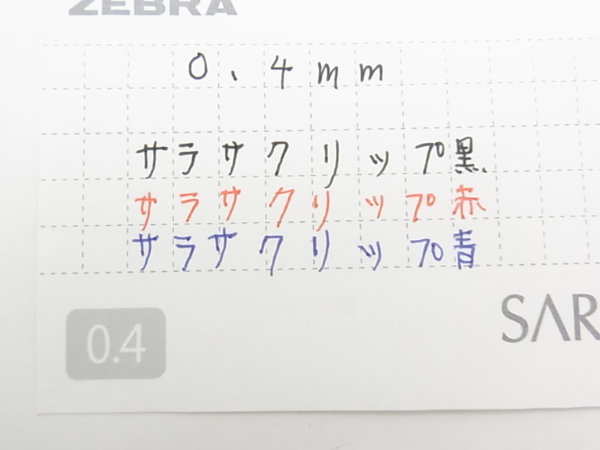 ZEBRA
0.4mm
サラサクリップ黒
サラサクリップ赤
サラサクリップ青
0.4
SAR